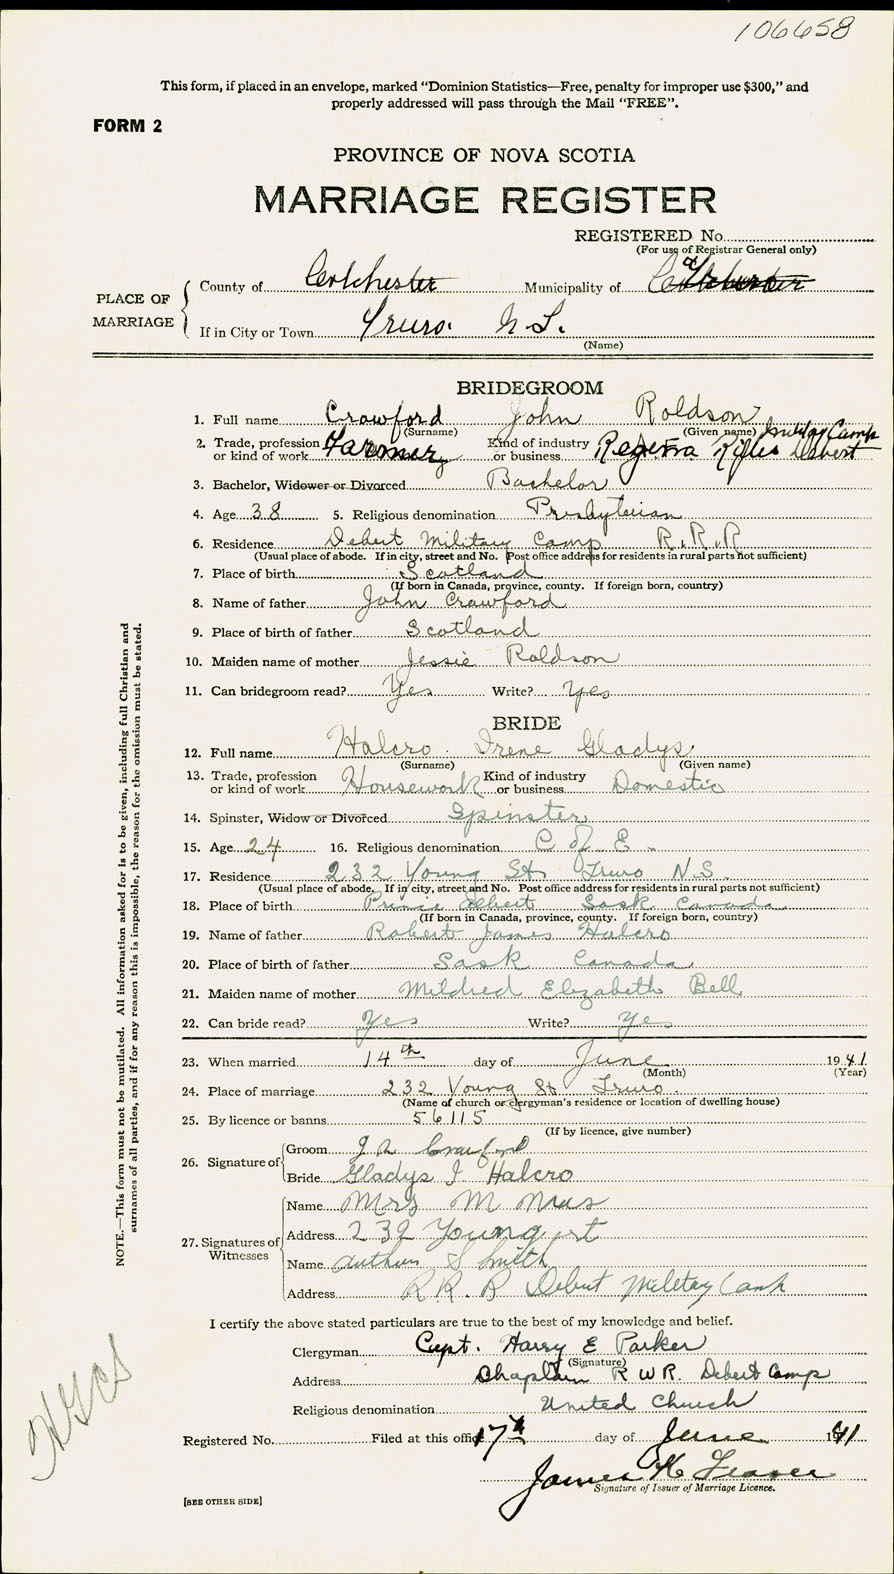 106658
This form, if placed in an envelope, marked "Dominion Statistics—Free, penalty for improper use $300," and
properly addressed will pass through the Mail "FREE".
FORM 2
PROVINCE OF NOVA SCOTIA
MARRIAGE REGISTER
REGISTERED No.
(For use of Registrar General only)
PLACE OF MARRIAGE
County of Colchester Municipality of
If in City or Town Truro. N.S.
(Name)
BRIDEGROOM
1. Full name Crawford John Roldson
(Surname) (Given name)
2. Trade, profession or kind of work Farmer Kind of industry or business Regina Rifles Military Camp Debert
3. Bachelor, Widower or Divorced Bachelor
4. Age 38 5. Religious denomination Presbyterian
6. Residence Debert Military Camp R.R.R
(Usual place of abode. If in city, street and No. Post office address for residents in rural parts not sufficient)
7. Place of birth Scotland
(If born in Canada, province, county. If foreign born, country)
8. Name of father John Crawford
9. Place of birth of father Scotland
10. Maiden name of mother Jessie Roldson
11. Can bridegroom read? Yes Write? Yes
BRIDE
12. Full name Halcro. Irene Gladys
(Surname) (Given name)
13. Trade, profession or kind of work Housework Kind of industry or business Domestic
14. Spinster, Widow or Divorced Spinster
15. Age 24 16. Religious denomination C of E.
17. Residence 232 Young St Truro N.S.
(Usual place of abode. If in city, street and No. Post office address for residents in rural parts not sufficient)
18. Place of birth Prince Albert Sask Canada
(If born in Canada, province, county. If foreign born, country)
19. Name of father Robert James Halcro
20. Place of birth of father Sask Canada
21. Maiden name of mother Mildred Elizabeth Bell
22. Can bride read? Yes Write? Yes
23. When married 14th day of June 1941
(Month) (Year)
24. Place of marriage 232 Young St Truro.
(Name of church or clergyman's residence or location of dwelling house)
25. By licence or banns 56115
(If by licence, give number)
26. Signature of
Groom J R Crawford
Bride Gladys I Halcro
27. Signatures of Witnesses
Name Mrs M
Address 232 Young st
Name Arthur S Smith
Address R.R.R Debert Military Camp
I certify the above stated particulars are true to the best of my knowledge and belief.
Clergyman Capt. Harry E Parker
(Signature)
Address Chaplain R W R. Debert Camp
Religious denomination United Church
Registered No. Filed at this office 17th day of June 1941
James H Fraser
Signature of Issuer of Marriage Licence.
[SEE OTHER SIDE]
NOTE.—This form must not be mutilated. All information asked for is to be given, including full Christian and
surnames of all parties, and if for any reason this is impossible, the reason for the omission must be stated.